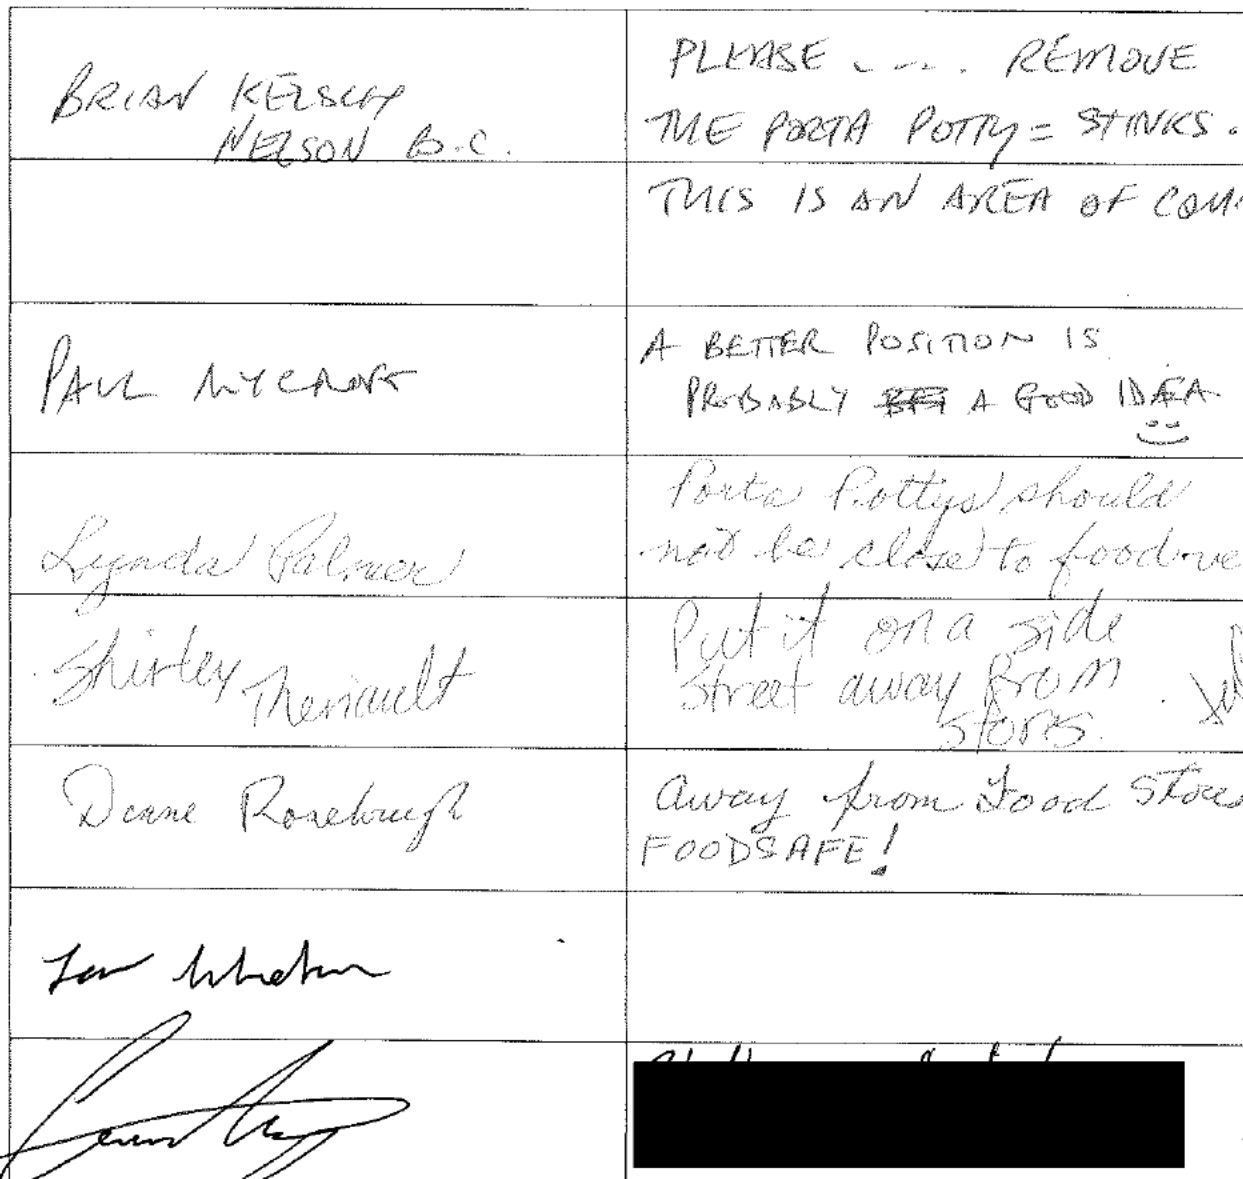 BRIAN
NELSON B.C.
PLEASE --. REMOVE
THE PORTA POTTY = STINKS.
THIS IS AN AREA OF COM
PAUL MYCROFT
A BETTER POSITION IS
PROBABLY A GOOD IDEA
Lynda Palmer
Porta Pottys should
not be close to food ve
Shirley Theriault
Put it on a side
street away from
stores.
Diane Rosebrugh
away from Food Stores
FOODSAFE!